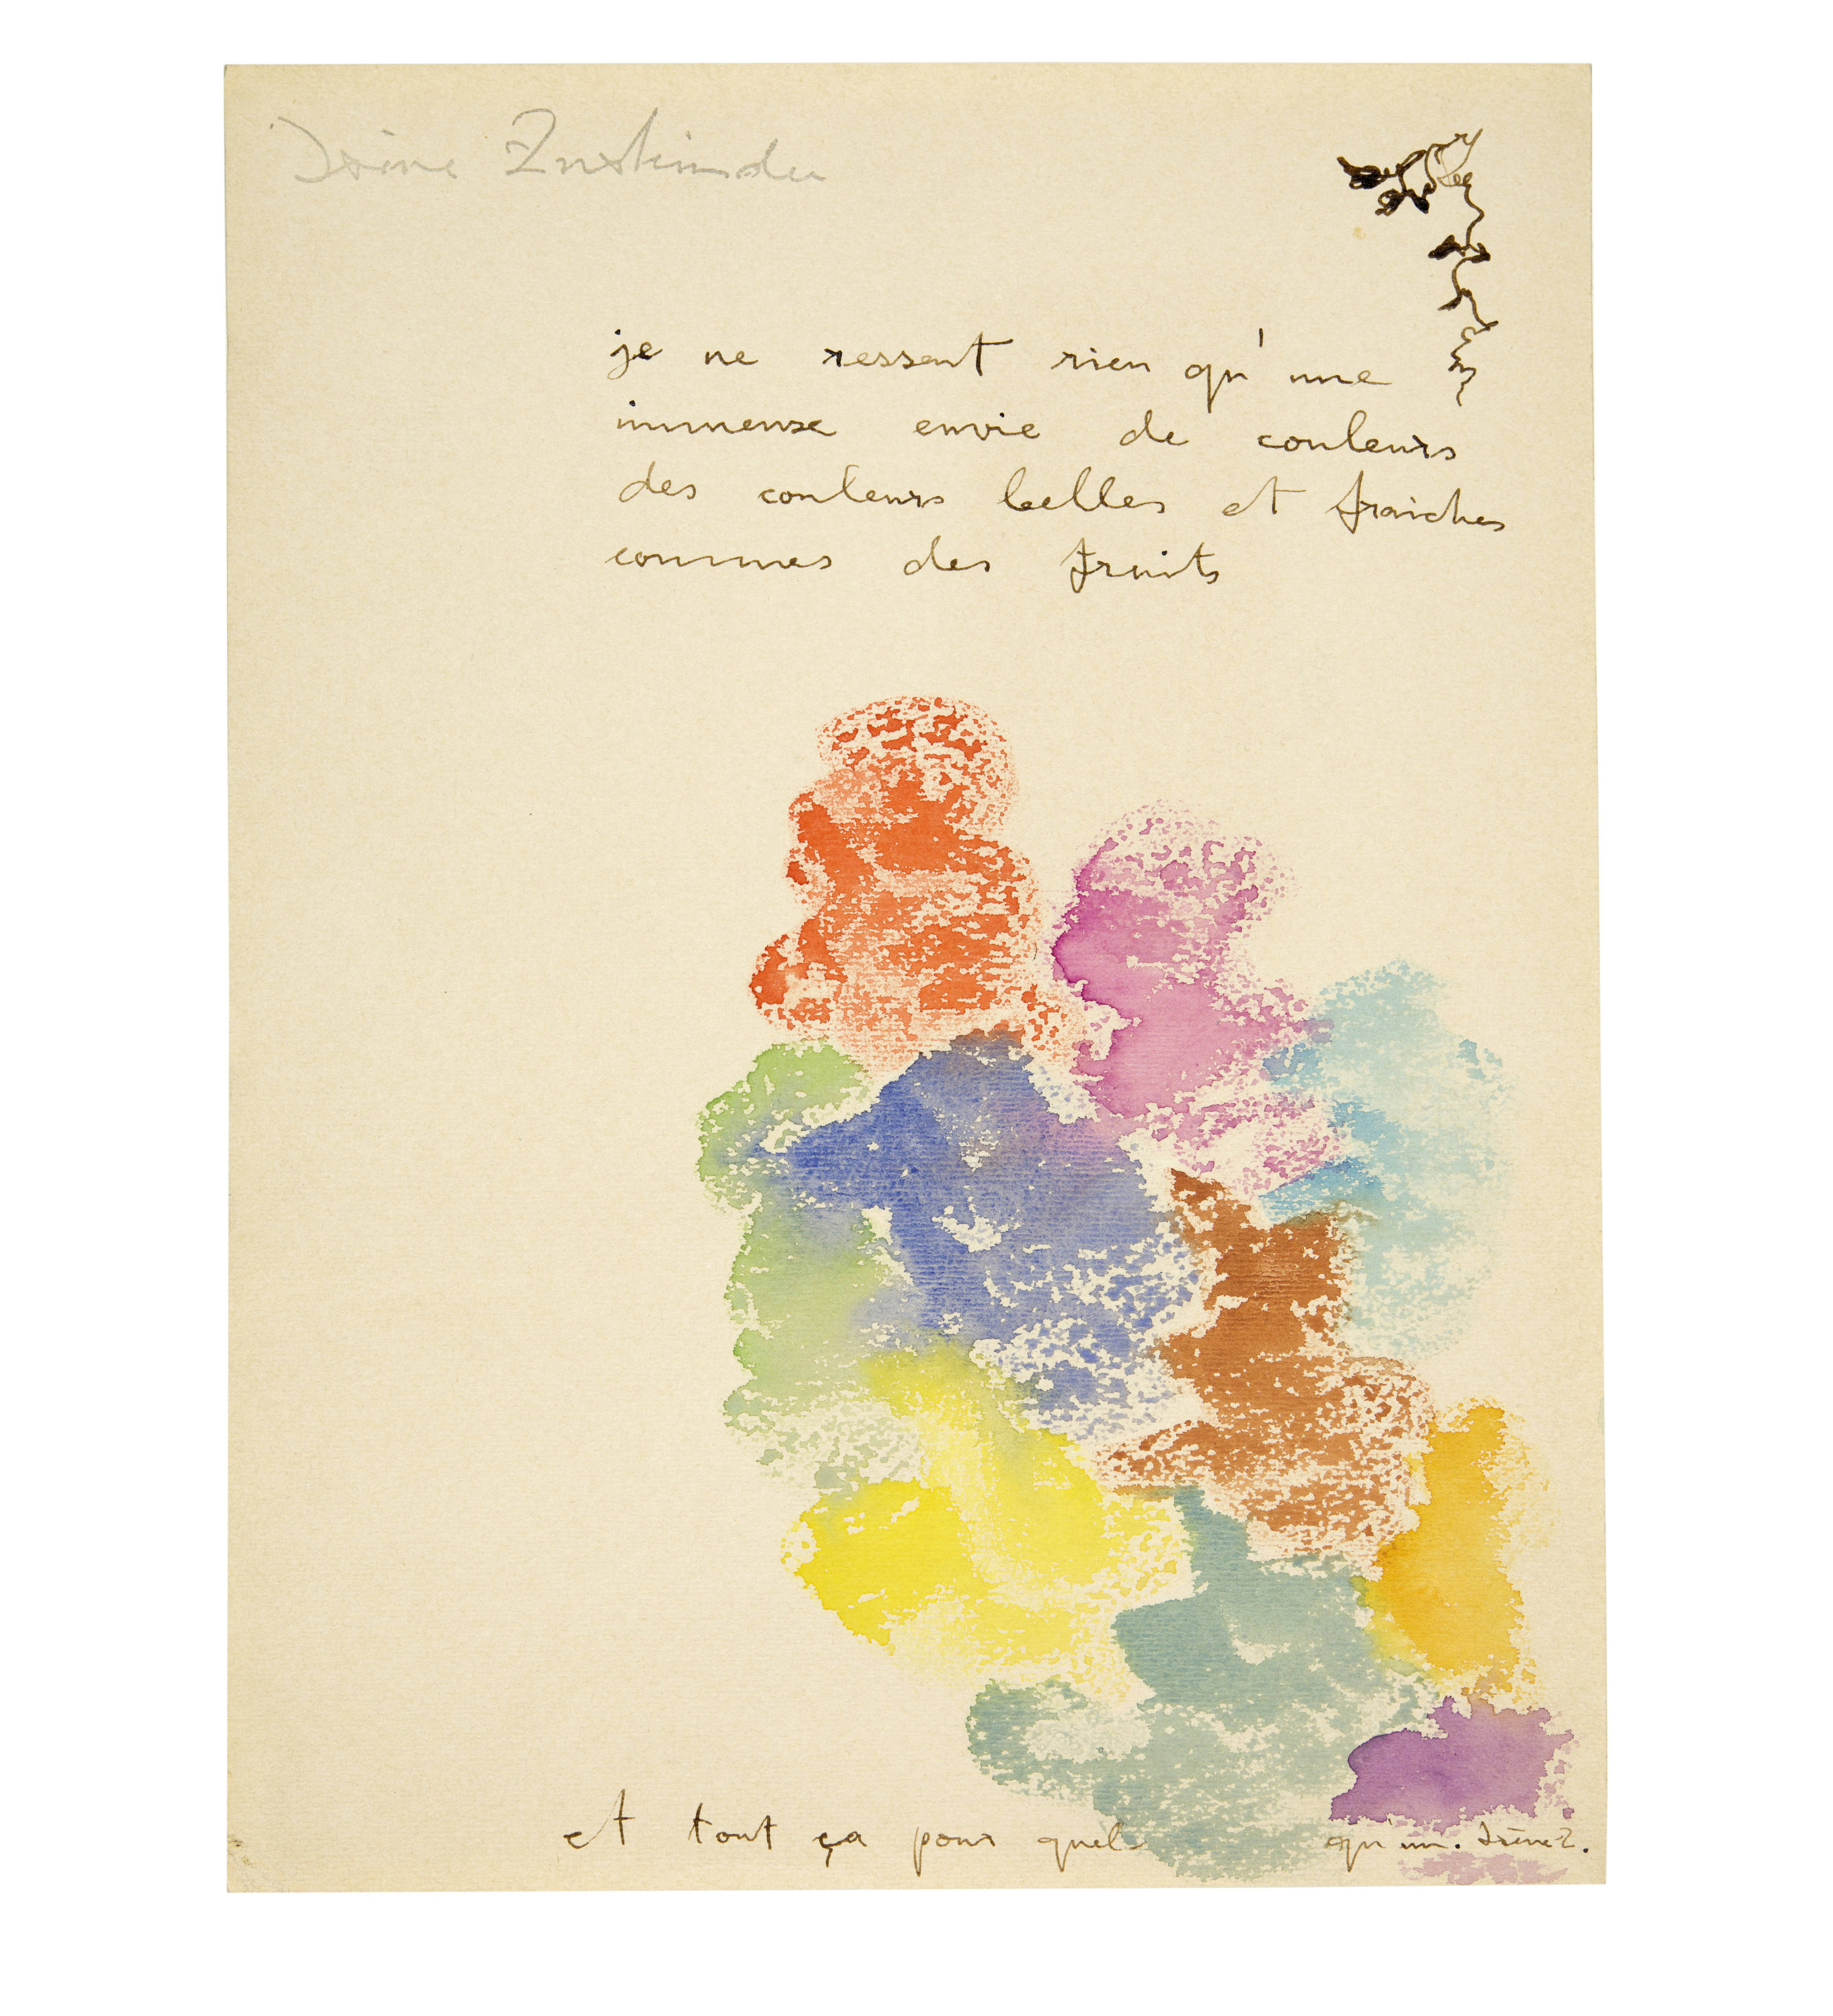 Irène Zurkinden
je ne ressent rien qu'une
immense envie de couleurs
des couleurs belles et fraiches
commes des fruits
et tout ça pour quel qu'un. Irène Z.